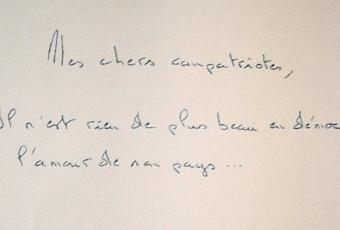 Mes chers compatriotes,
Il n'est rien de plus beau en démoc
l'amour de son pays...